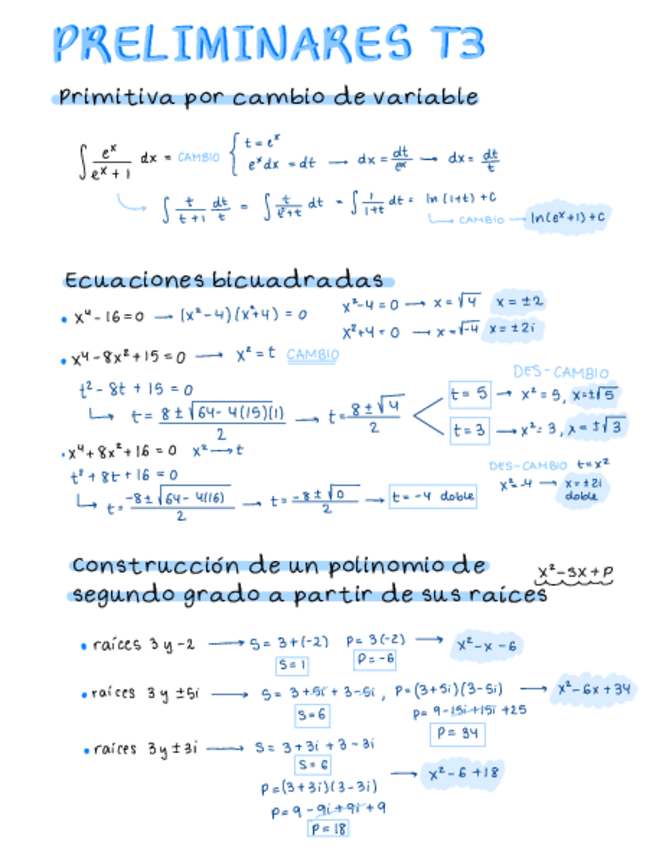 PRELIMINARES T3
Primitiva por cambio de variable
∫ eˣ/(eˣ + 1) dx = CAMBIO { t = eˣ
eˣdx = dt → dx = dt/eˣ → dx = dt/t
∫ t/(t+1) dt/t = ∫ t/(t²+t) dt = ∫ 1/(1+t) dt = ln(1+t) + C
→ CAMBIO → ln(eˣ+1) + C
Ecuaciones bicuadradas
• x⁴ - 16 = 0 → (x² - 4)(x² + 4) = 0 x² - 4 = 0 → x = √4 x = ±2
x² + 4 = 0 → x = √-4 x = ±2i
• x⁴ - 8x² + 15 = 0 → x² = t CAMBIO
DES-CAMBIO
t² - 8t + 15 = 0
t = (8 ± √(64 - 4(15)(1)))/2 → t = (8 ± √4)/2 t = 5 → x² = 5, x = ±√5
t = 3 → x² = 3, x = ±√3
• x⁴ + 8x² + 16 = 0 x² → t
t² + 8t + 16 = 0 DES-CAMBIO t = x²
t = (-8 ± √(64 - 4(16)))/2 → t = (-8 ± √0)/2 → t = -4 doble x² = -4 → x = ±2i doble
Construcción de un polinomio de
segundo grado a partir de sus raíces x² - Sx + P
• raíces 3 y -2 → S = 3 + (-2) P = 3(-2) → x² - x - 6
S = 1 P = -6
• raíces 3 y ±5i → S = 3 + 5i + 3 - 5i, P = (3 + 5i)(3 - 5i) → x² - 6x + 34
S = 6 P = 9 - 15i + 15i + 25
P = 34
• raíces 3 y ± 3i → S = 3 + 3i + 3 - 3i
S = 6
P = (3 + 3i)(3 - 3i) → x² - 6 + 18
P = 9 - 9i + 9i + 9
P = 18